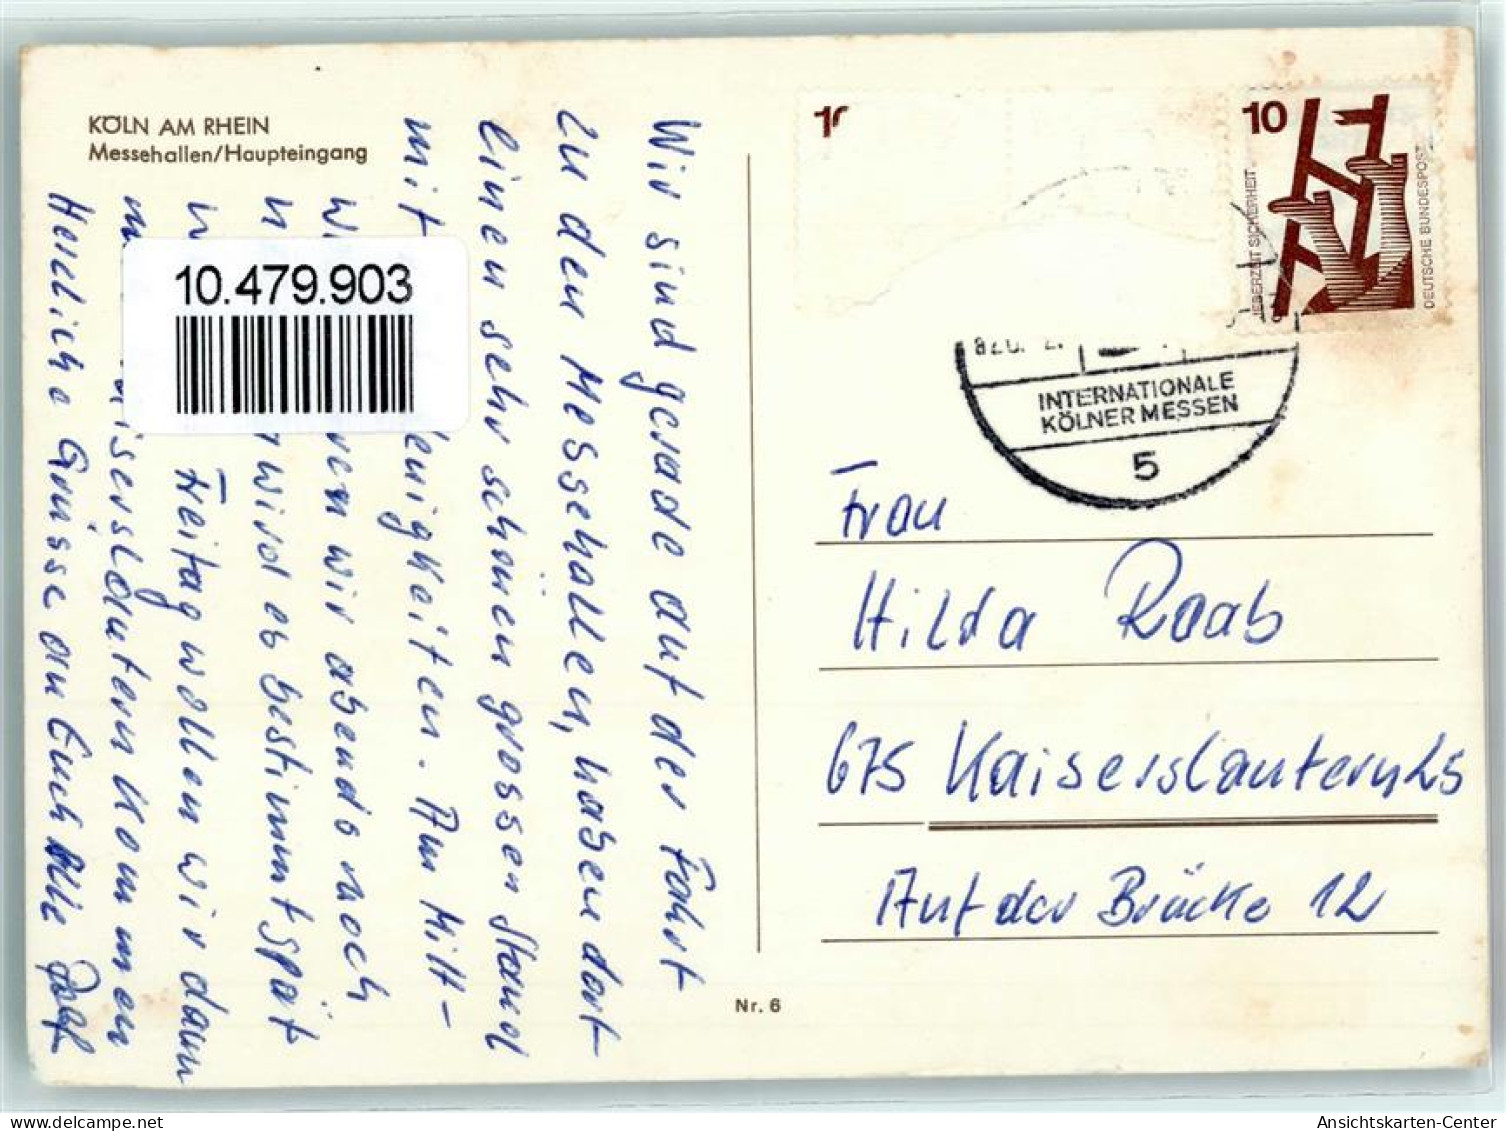 KÖLN AM RHEIN
Messehallen/Haupteingang
10.479.903
Wir sind gerade auf der Fahrt
zu den Messehallen, haben dort
einen sehr schönen grossen Stand
mit Neuigkeiten. Am Mitt-
wir abends noch
wird es bestimmt spät
Freitag wollen wir dann
Kaiserslautern kommen
Herzliche Grüsse an Euch Alle
10
10
JEDERZEIT SICHERHEIT
DEUTSCHE BUNDESPOST
INTERNATIONALE
KÖLNER MESSEN
5
Frau
Hilda Raab
675 Kaiserslautern
Auf der Brücke 12
Nr. 6
www.delcampe.net
Ansichtskarten-Center